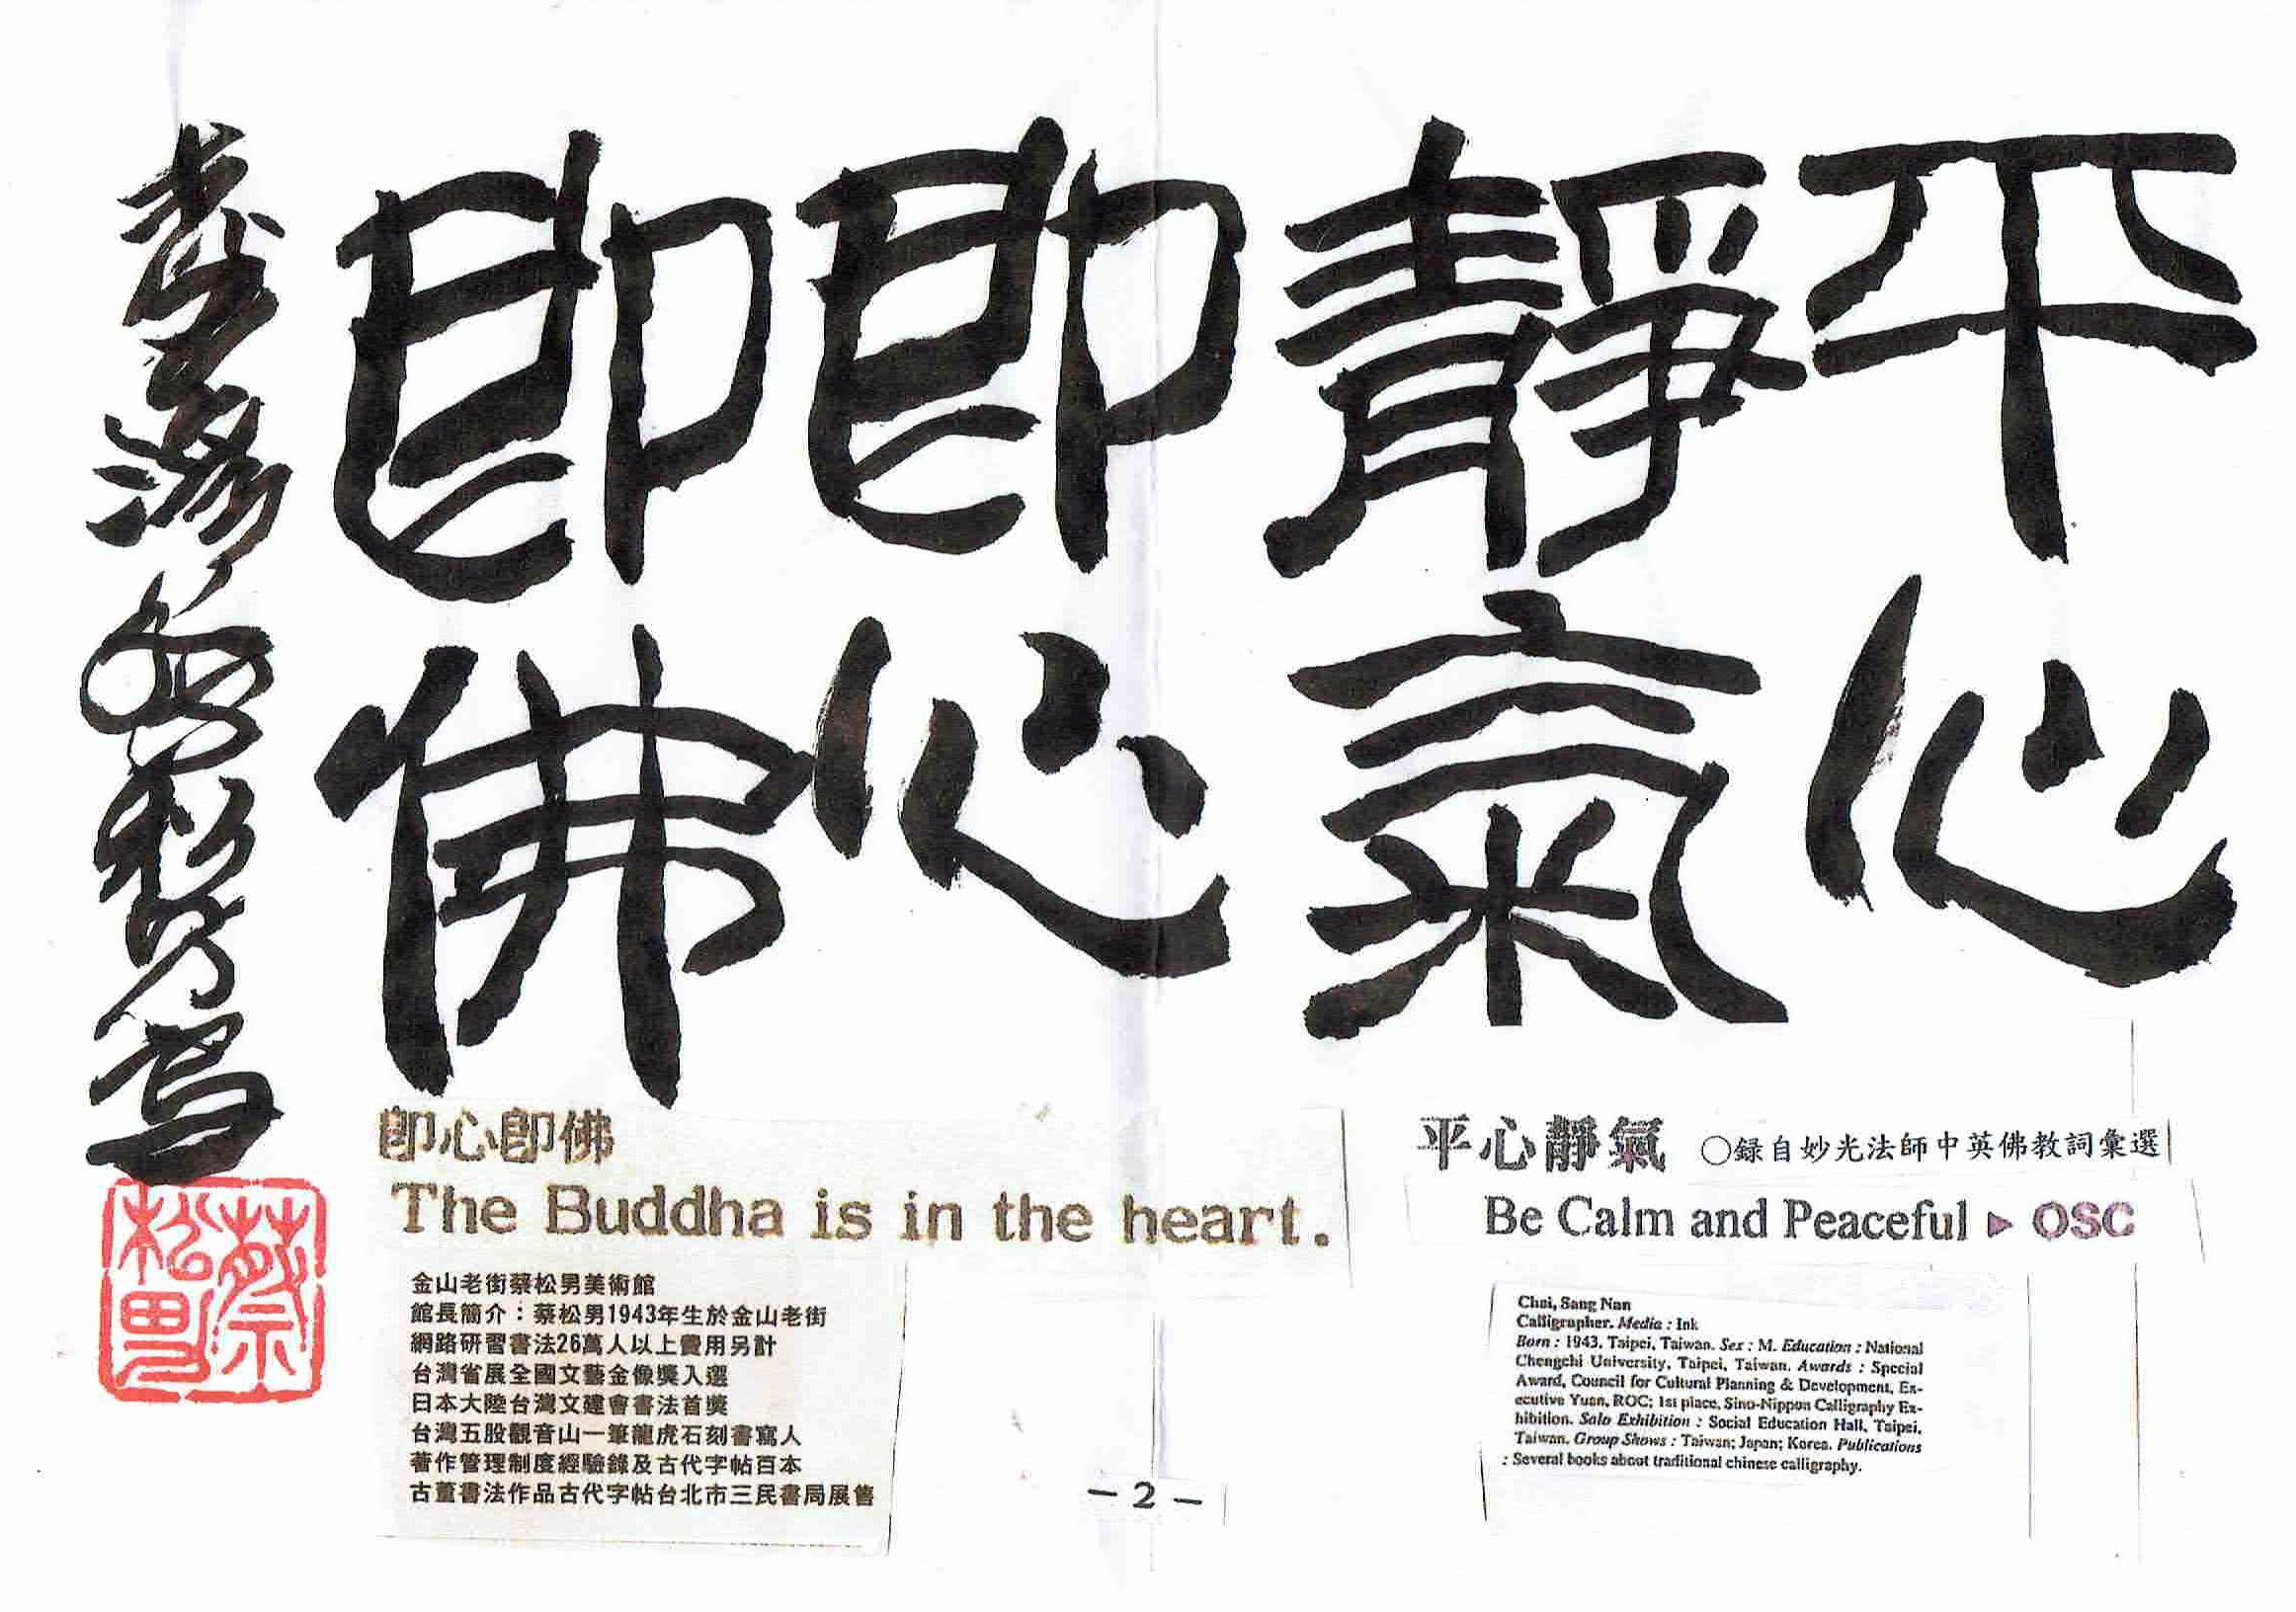 平心
靜氣
即心
即佛
蔡松男
即心即佛
The Buddha is in the heart.
金山老街蔡松男美術館
館長簡介：蔡松男1943年生於金山老街
網路研習書法26萬人以上費用另計
台灣省展全國文藝金像獎入選
日本大陸台灣文建會書法首獎
台灣五股觀音山一筆龍虎石刻書寫人
著作管理制度經驗錄及古代字帖百本
古董書法作品古代字帖台北市三民書局展售
平心靜氣 ○録自妙光法師中英佛教詞彙選
Be Calm and Peaceful ▶ OSC
Chai, Sang Nan
Calligrapher. Media : Ink
Born : 1943, Taipei, Taiwan. Sex : M. Education : National
Chengchi University, Taipei, Taiwan. Awards : Special
Award, Council for Cultural Planning & Development, Ex-
ecutive Yuan, ROC; 1st place, Sino-Nippon Calligraphy Ex-
hibition. Solo Exhibition : Social Education Hall, Taipei,
Taiwan. Group Shows : Taiwan; Japan; Korea. Publications
: Several books about traditional chinese calligraphy.
– 2 –